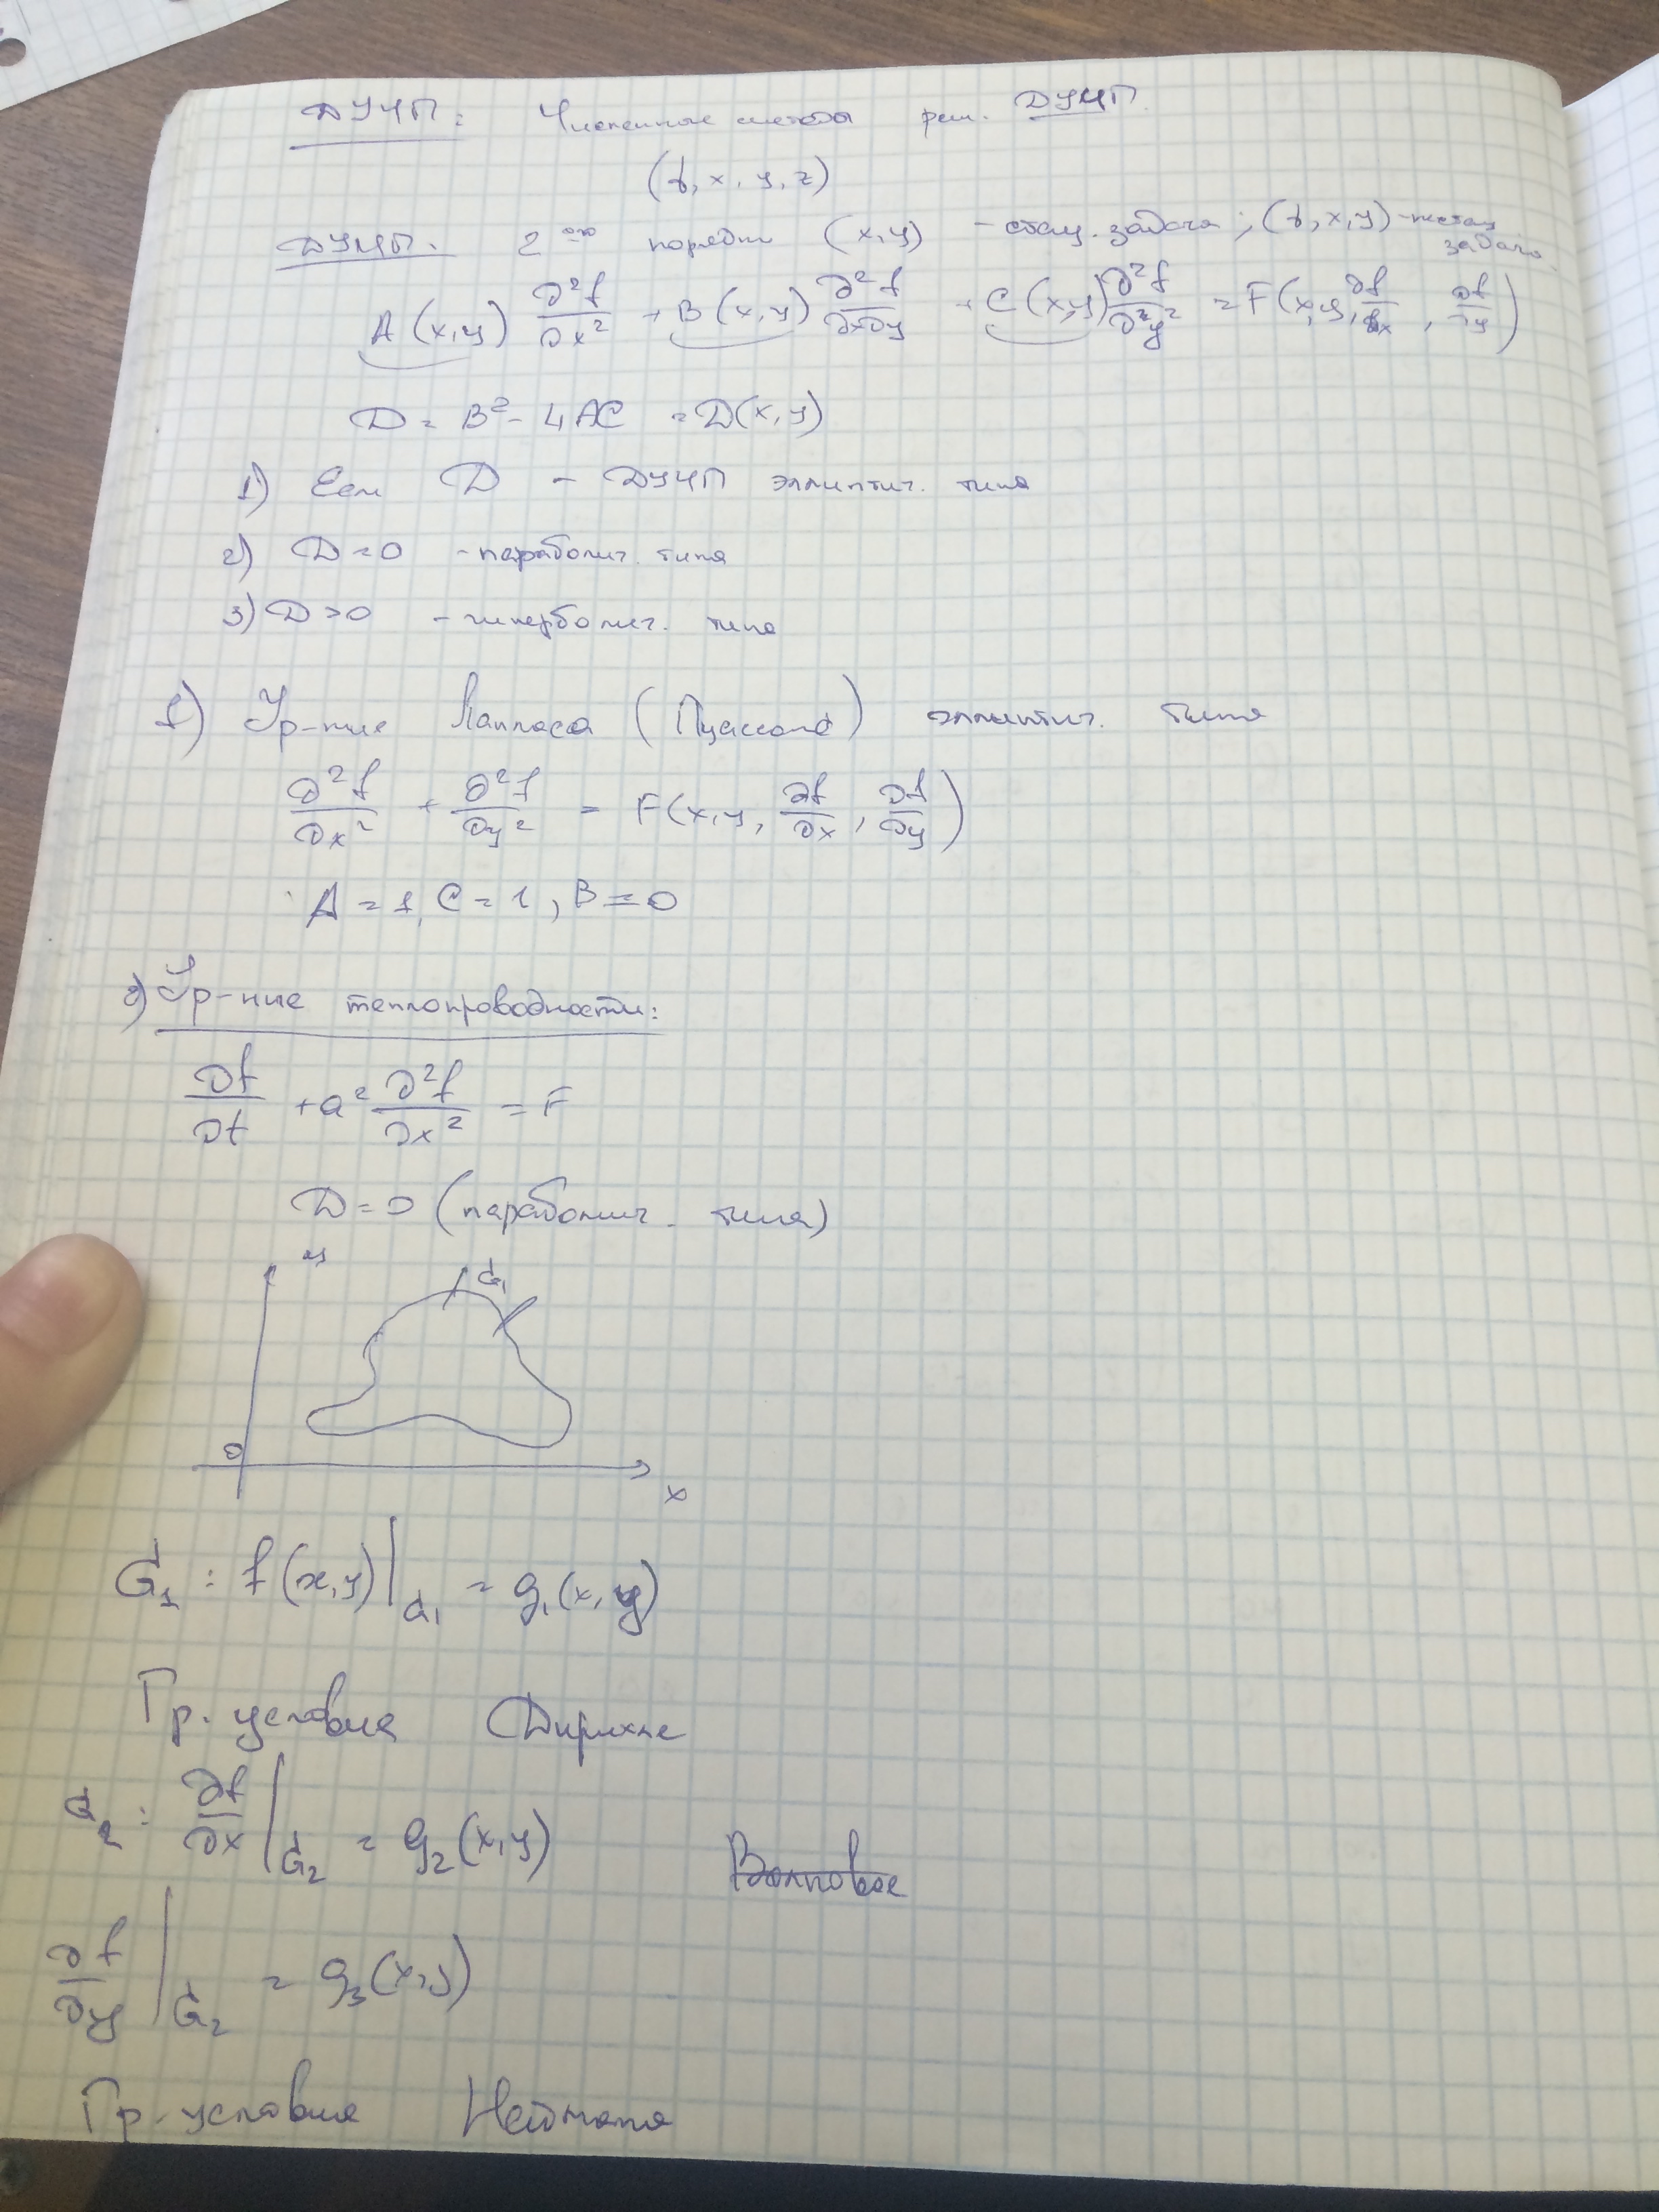 ДУЧП: Численные методы реш. ДУЧП.
(t, x, y, z)
ДУЧП. 2-ого порядка (x,y) - стац. задача; (t,x,y) - нестац. задача.
A(x,y) ∂²f/∂x² + B(x,y) ∂²f/∂x∂y + C(x,y) ∂²f/∂²y² = F(x,y, ∂f/∂x, ∂f/∂y)
D = B² - 4AC = D(x,y)
1) Если D - ДУЧП эллиптич. типа
2) D=0 - параболич. типа
3) D>0 - гиперболич. типа
1) Ур-ние Лапласа (Пуассона) эллиптич. типа
∂²f/∂x² + ∂²f/∂y² = F(x,y, ∂f/∂x, ∂f/∂y)
A=1, C=1, B=0
2) Ур-ние теплопроводности:
∂f/∂t + a² ∂²f/∂x² = F
D=0 (параболич. типа)
y
G₁
0
x
G₁: f(x,y)|G₁ = g₁(x,y)
Гр. условия Дирихле
G₂: ∂f/∂x|G₂ = g₂(x,y)
Волновое
∂f/∂y|G₂ = g₃(x,y)
Гр. условия Неймана